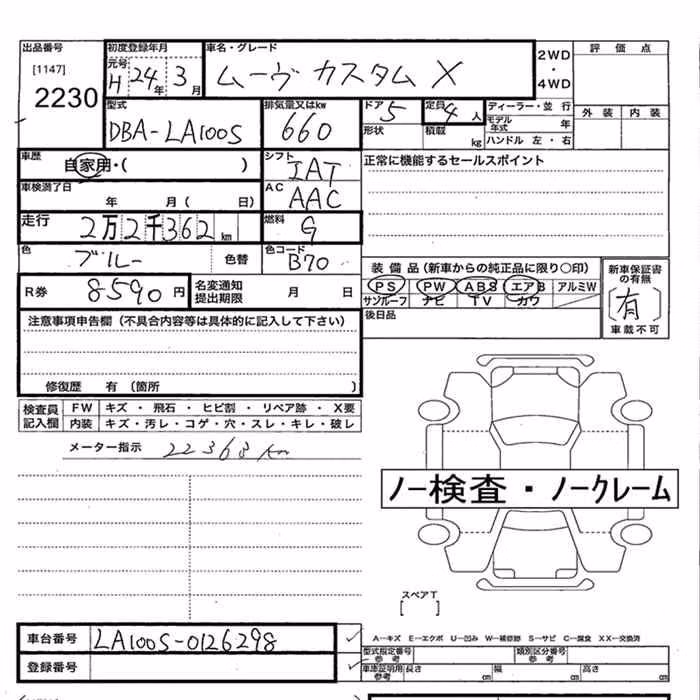 出品番号 初度登録年月 車名・グレード 2WD・4WD 評価点
[1147] 元号 H 24年 3月 ムーヴ カスタム X
2230 外装 内装
型式 DBA-LA100S 排気量又はkw 660 ドア 5 定員 4人 ディーラー・並行
形状 積載 kg モデル年式 年
ハンドル 左・右
車歴 自家用・( ) シフト IAT 正常に機能するセールスポイント
車検満了日 年 月( 日) AC AAC
走行 2万2千362km 燃料 G
色 ブルー 色替 色コード B70
装備品(新車からの純正品に限り〇印) 新車保証書の有無
R券 8590円 名変通知提出期限 月 日 PS PW ABS エアB アルミW [有]
サンルーフ ナビ TV カワ 車載不可
注意事項申告欄(不具合内容等は具体的に記入して下さい) 後日品
修復歴 有(箇所 )
検査員記入欄 FW キズ・飛石・ヒビ割・リペア跡・X要
内装 キズ・汚レ・コゲ・穴・スレ・キレ・破レ
メーター指示 22368 km
ノー検査・ノークレーム
スペアT
[ ]
車台番号 LA100S-0126298 A－キズ E－エクボ U－凹み W－補修跡 S－サビ C－腐食 XX－交換済
登録番号 型式指定番号参考 類別区分番号参考
車庫証明用参考 長さ cm 幅 cm 高さ cm